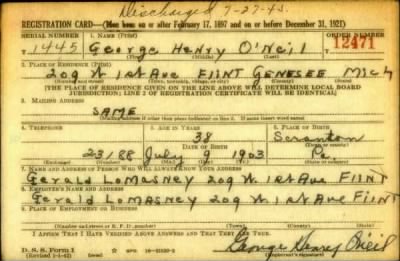 Discharged 7-27-43.
REGISTRATION CARD—(Men born on or after February 17, 1897 and on or before December 31, 1921)
SERIAL NUMBER 1. NAME (Print) ORDER NUMBER
1445 George Henry O'Neil 12471
(First) (Middle) (Last)
2. PLACE OF RESIDENCE (Print)
209 W 1st Ave FlINT GENESEE Mich
(Number and street) (Town, township, village, or city) (County) (State)
[THE PLACE OF RESIDENCE GIVEN ON THE LINE ABOVE WILL DETERMINE LOCAL BOARD
JURISDICTION; LINE 2 OF REGISTRATION CERTIFICATE WILL BE IDENTICAL]
3. MAILING ADDRESS
SAME
(Mailing address if other than place indicated on line 2. If same insert word same)
4. TELEPHONE 5. AGE IN YEARS 6. PLACE OF BIRTH
38 Scranton
DATE OF BIRTH
23188 July 9 1903 Pa.
(Exchange) (Number) (Mo.) (Day) (Yr.) (State or country)
7. NAME AND ADDRESS OF PERSON WHO WILL ALWAYS KNOW YOUR ADDRESS
Gerald LoMasney 209 W 1st Ave FlINT
8. EMPLOYER'S NAME AND ADDRESS
Gerald LoMasney 209 W. 1st Ave FlINT
9. PLACE OF EMPLOYMENT OR BUSINESS
(Number and street or R. F. D. number) (Town) (County) (State)
I AFFIRM THAT I HAVE VERIFIED ABOVE ANSWERS AND THAT THEY ARE TRUE.
D. S. S. Form 1
(Revised 1-1-42) George Henry O'neil
(Registrant's signature)